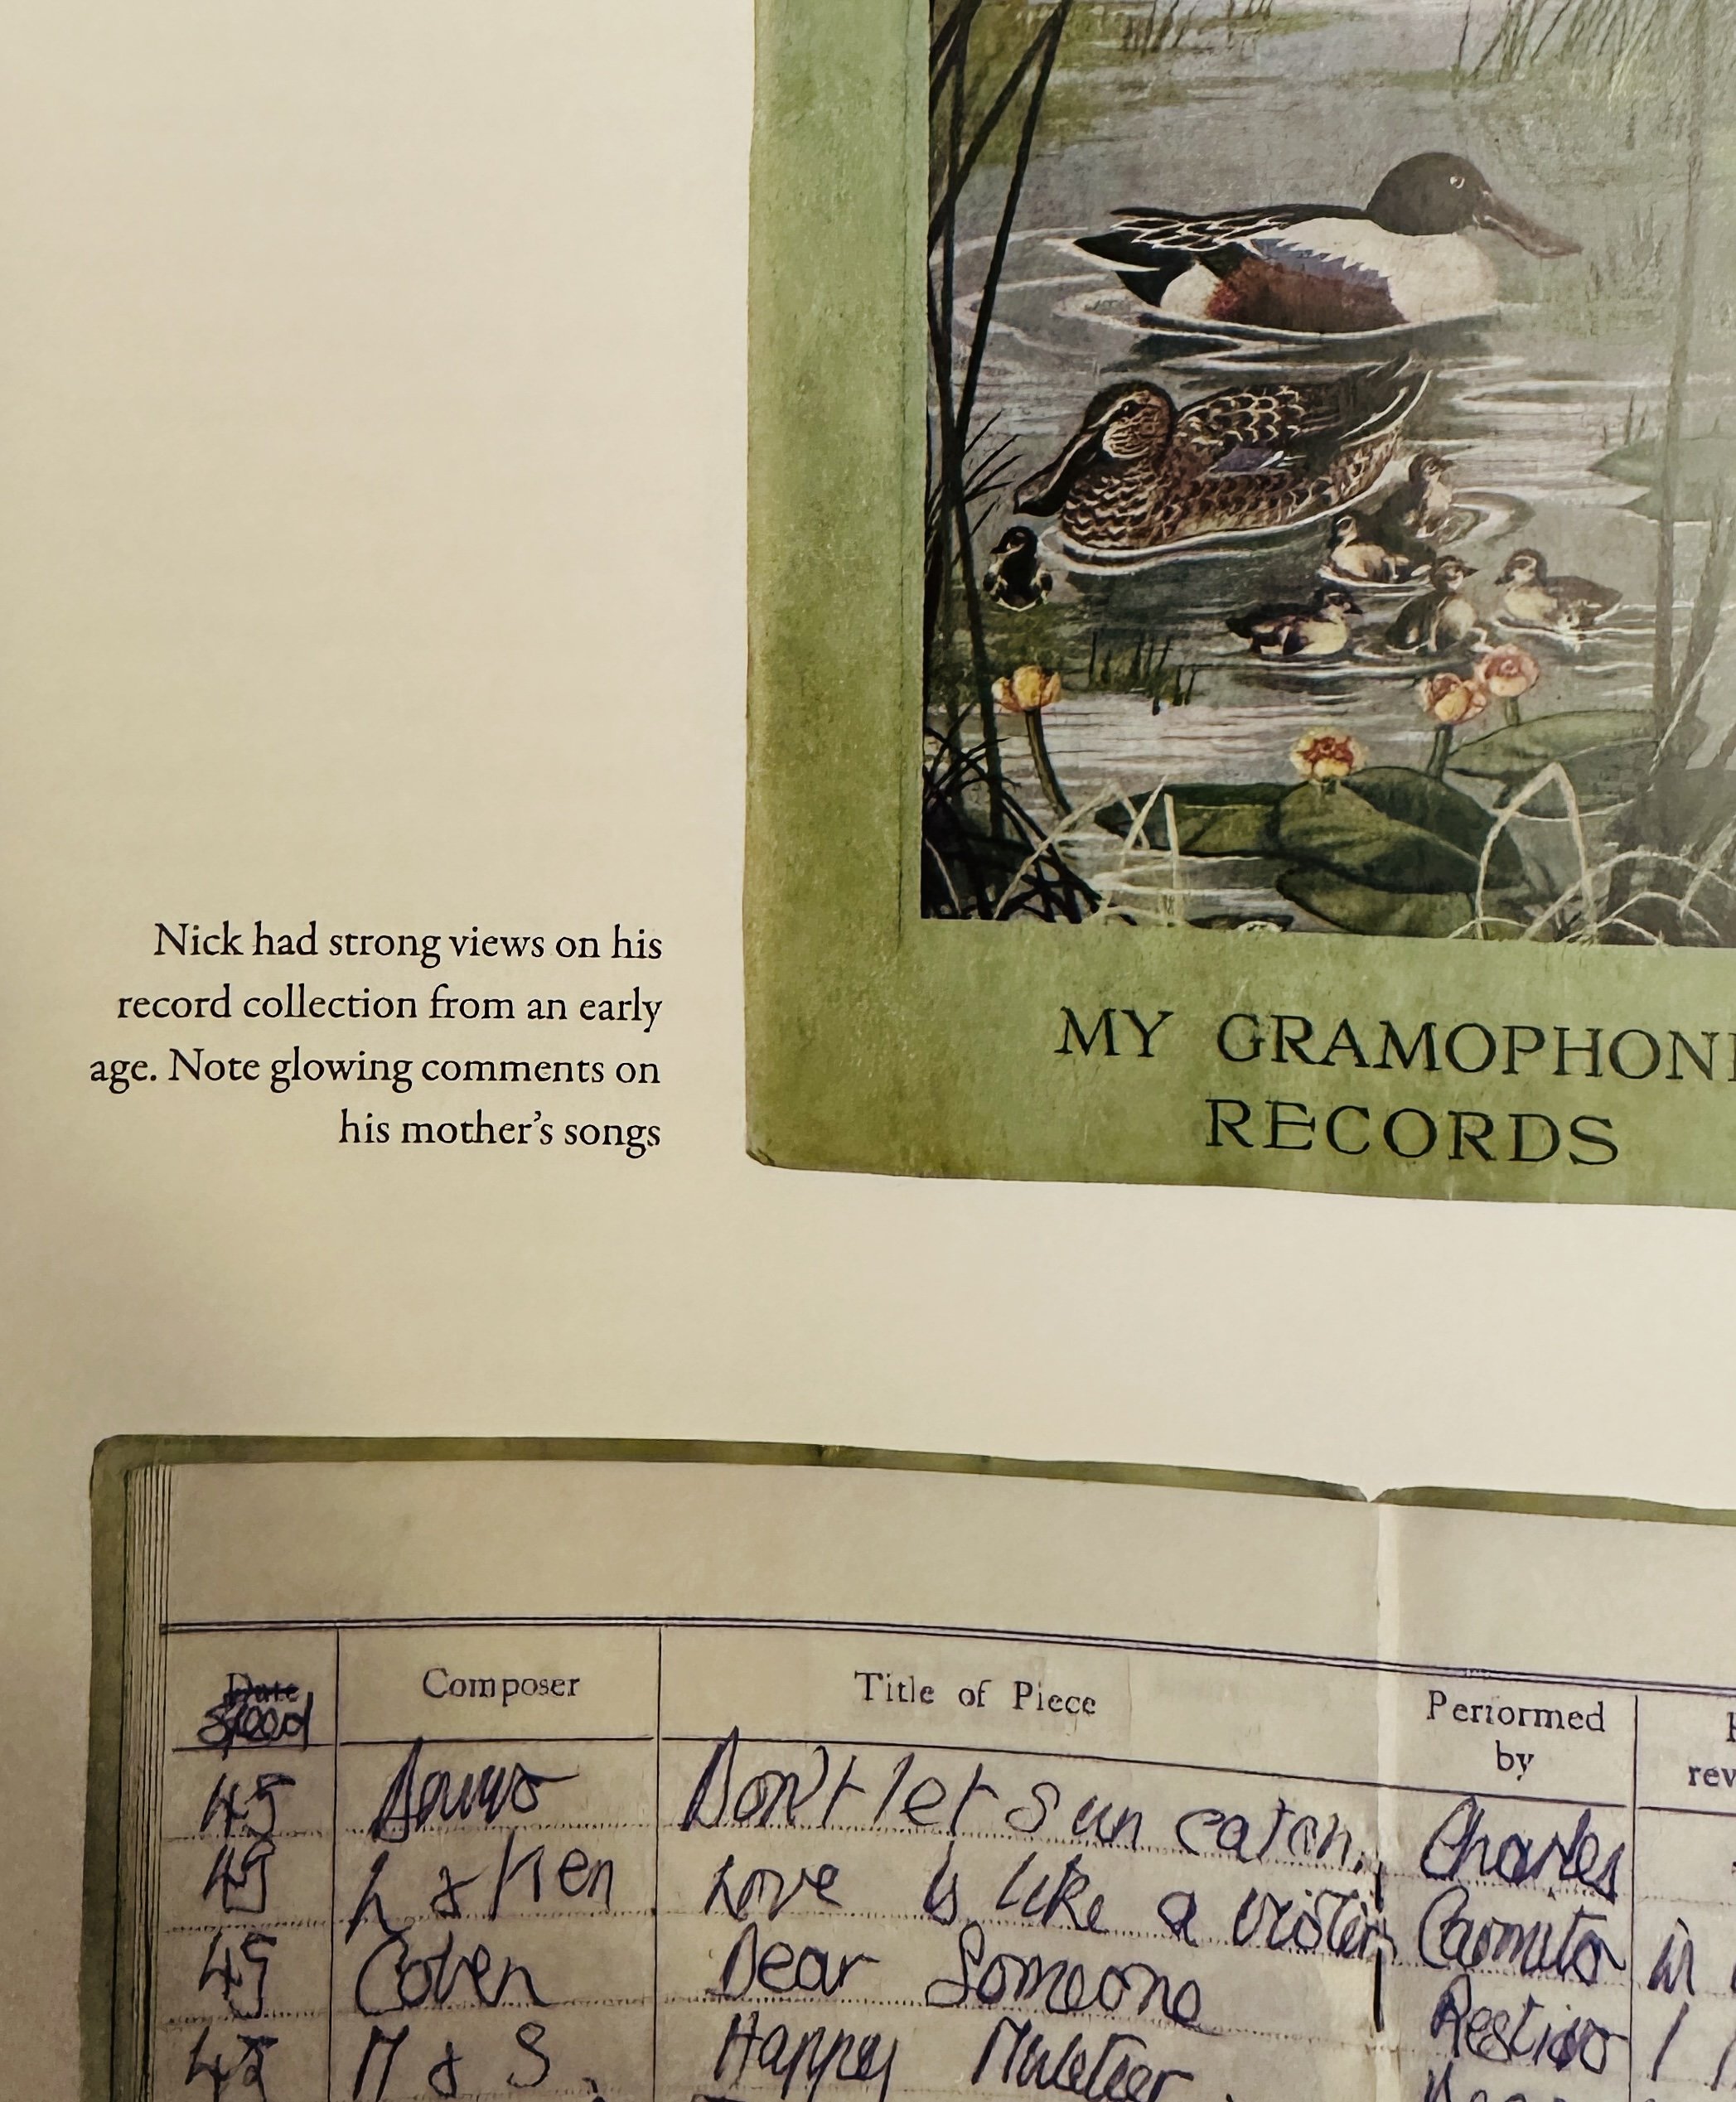 Nick had strong views on his
record collection from an early
age. Note glowing comments on
his mother's songs
MY GRAMOPHONE
RECORDS
Date Composer Title of Piece Performed
Speed by rev
45 Don't let sun catch Charles
45 L & Ken Love is like a violin
45 Coben Dear Someone
45 M & S. Happy Muleteer